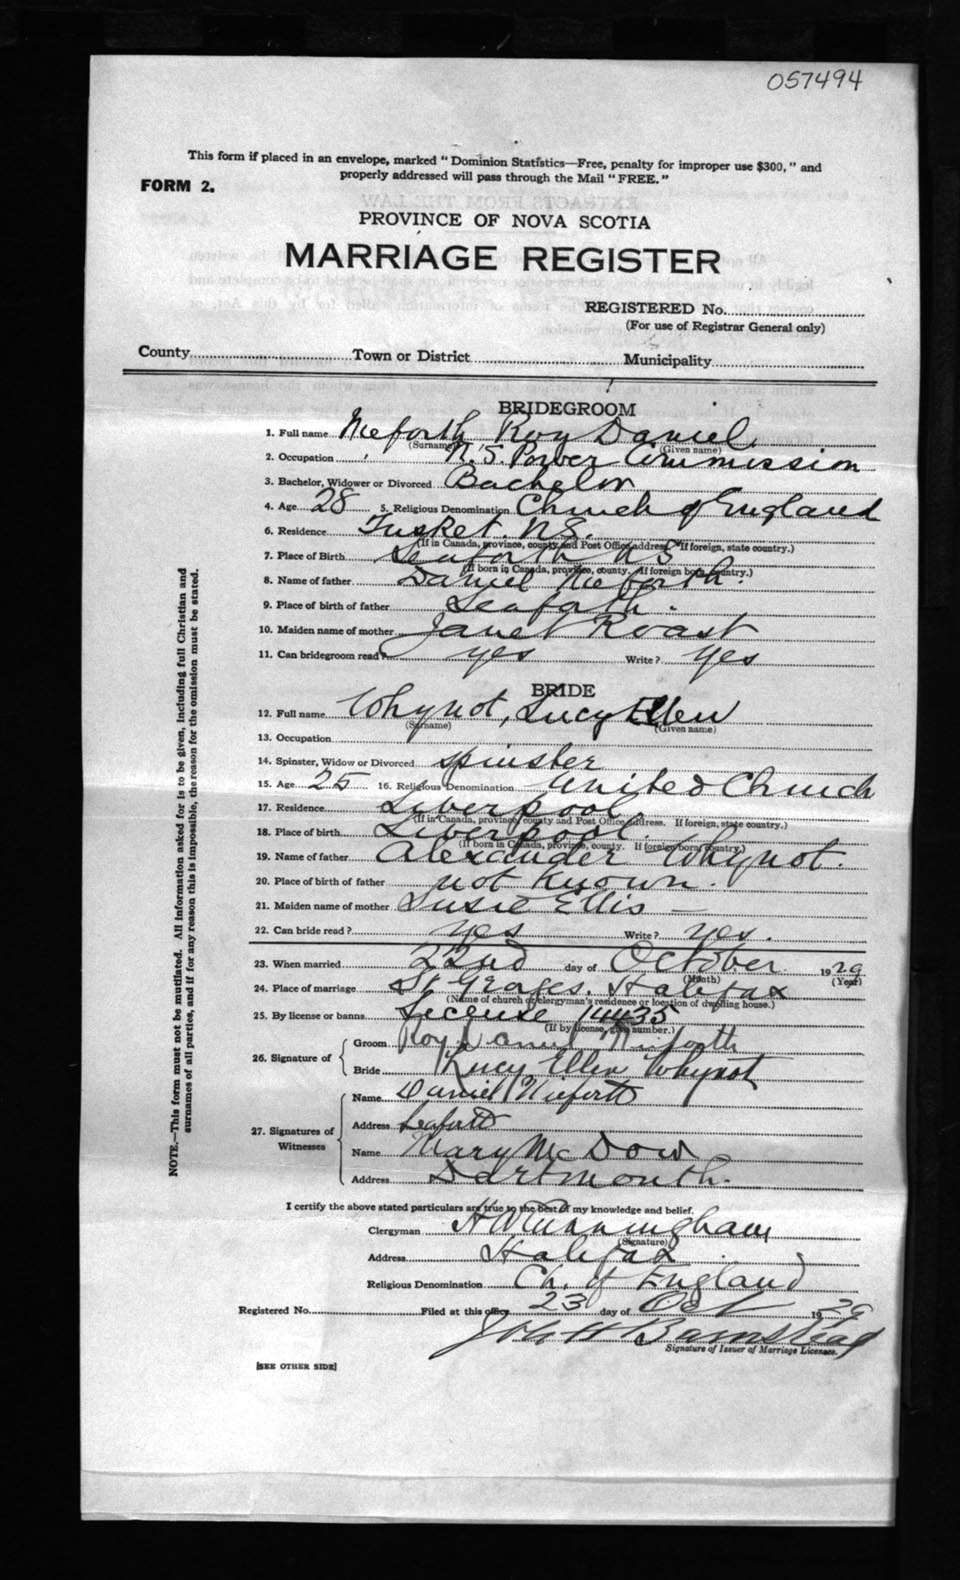 057494
This form if placed in an envelope, marked " Dominion Statistics—Free, penalty for improper use $300, " and
properly addressed will pass through the Mail " FREE. "
FORM 2.
PROVINCE OF NOVA SCOTIA
MARRIAGE REGISTER
REGISTERED No.
(For use of Registrar General only)
County Town or District Municipality
BRIDEGROOM
1. Full name Nieforth Roy Daniel
(Surname) (Given name)
2. Occupation N.S. Power Commission
3. Bachelor, Widower or Divorced Bachelor
4. Age 28 5. Religious Denomination Church of England
6. Residence Tusket. N.S.
(If in Canada, province, county and Post Office address. If foreign, state country.)
7. Place of Birth Seaforth N S
(If born in Canada, province, county. If foreign born country.)
8. Name of father Daniel Nieforth.
9. Place of birth of father Seaforth.
10. Maiden name of mother Janet Roast
11. Can bridegroom read? yes Write? yes
BRIDE
12. Full name Whynot, Lucy Ellen
(Surname) (Given name)
13. Occupation
14. Spinster, Widow or Divorced spinster
15. Age 25 16. Religious Denomination United Church
17. Residence Liverpool
(If in Canada, province, county and Post Office address. If foreign, state country.)
18. Place of birth Liverpool.
(If born in Canada, province, county. If foreign born country.)
19. Name of father Alexander Whynot.
20. Place of birth of father not known.
21. Maiden name of mother Susie Ellis —
22. Can bride read? yes Write? yes.
23. When married 22nd day of October 1929
(Month) (Year)
24. Place of marriage St Georges, Halifax
(Name of church or clergyman's residence or location of dwelling house.)
25. By license or banns License 14435
(If by license, give number.)
26. Signature of Groom Roy Daniel Nieforth
Bride Lucy Ellen Whynot
27. Signatures of Witnesses Name Daniel Nieforth
Address Seaforth
Name Mary McDow
Address Dartmouth.
I certify the above stated particulars are true to the best of my knowledge and belief.
Clergyman H W Cunningham
(Signature)
Address Halifax
Religious Denomination Ch. of England
Registered No. Filed at this office 23 day of Oct 1929
Barnstead
Signature of Issuer of Marriage Licenses.
[SEE OTHER SIDE]
NOTE.—This form must not be mutilated. All information asked for is to be given, including full Christian and
surnames of all parties, and if for any reason this is impossible, the reason for the omission must be stated.